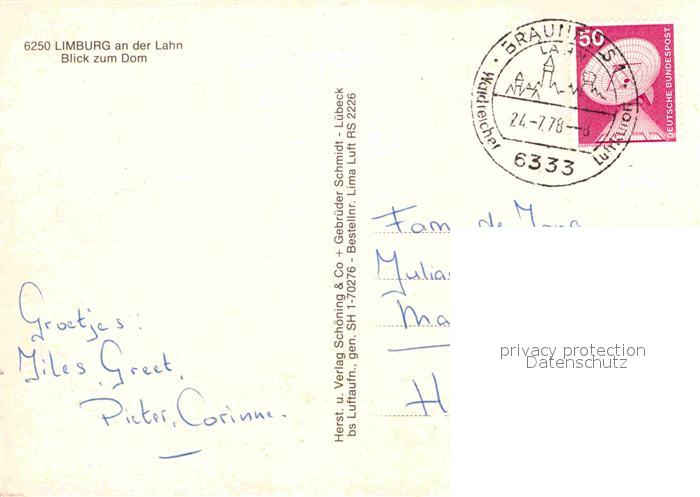 6250 LIMBURG an der Lahn
Blick zum Dom
BRAUNFELS
LAHN
Waldreicher
Luftkurort
24.-7.78--8
6333
50
DEUTSCHE BUNDESPOST
Herst. u. Verlag Schöning & Co + Gebrüder Schmidt - Lübeck
bs Luftaufn., gen. SH 1-70276 - Bestellnr. Lima Luft RS 2226
Fam de
Julia
Ma
H
privacy protection
Datenschutz
Groetjes:
Jiles, Greet,
Pieter, Corinne.